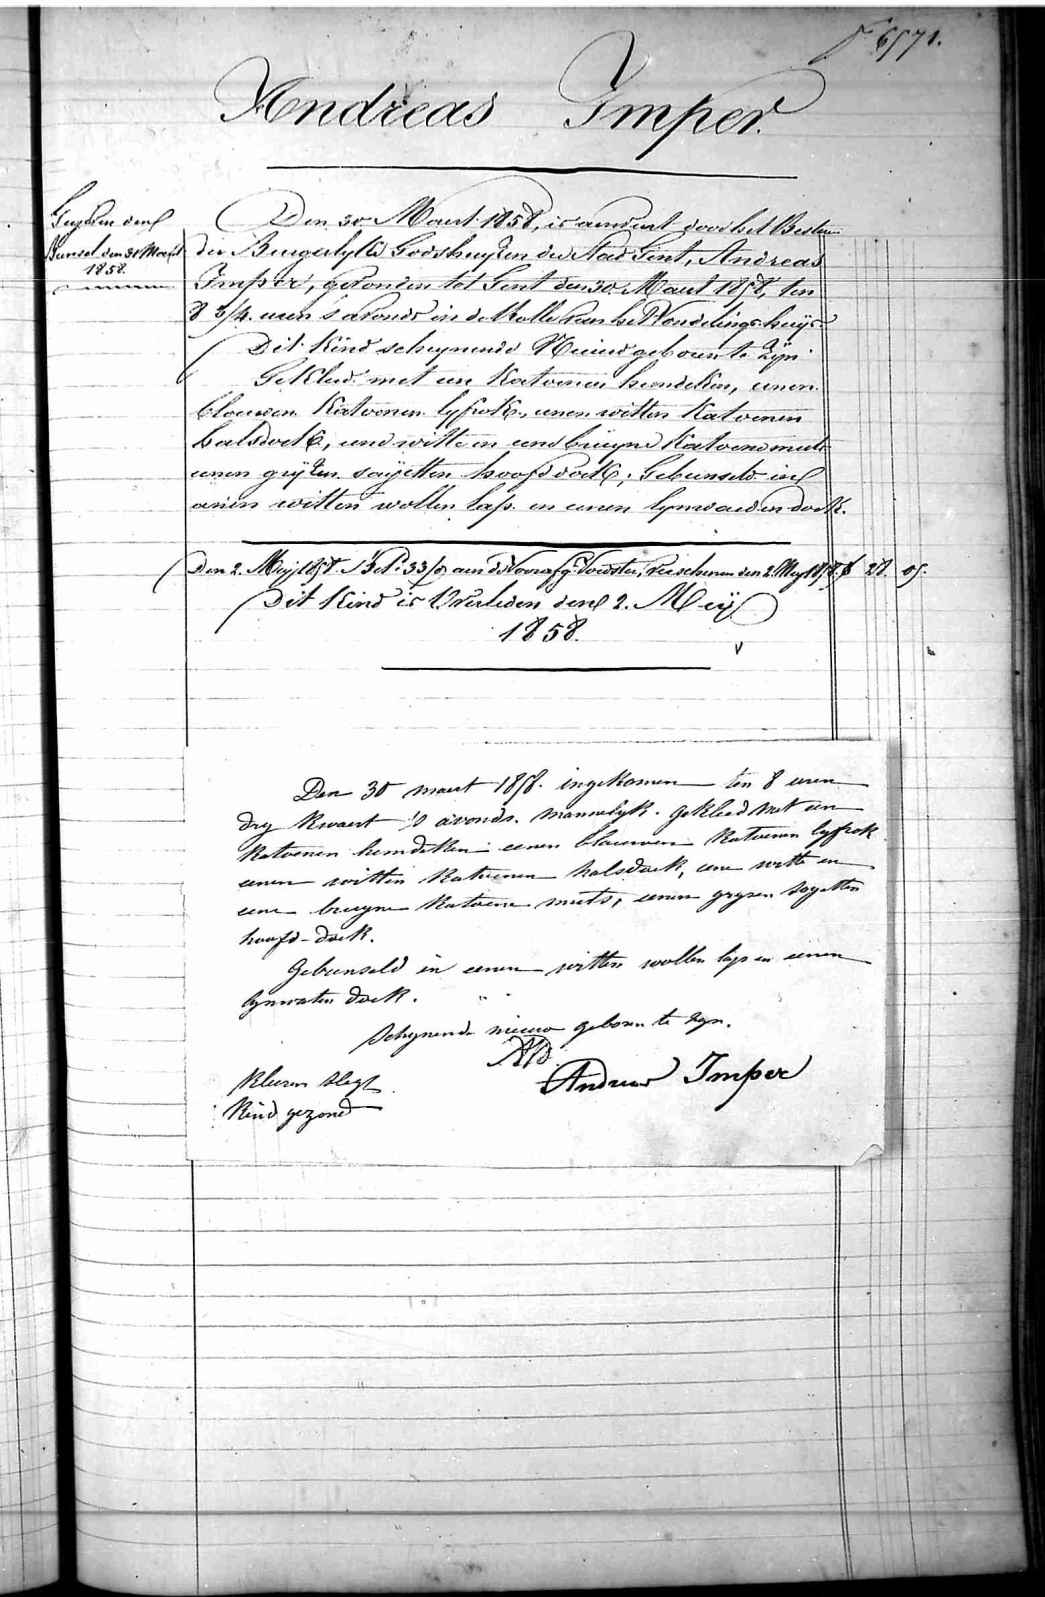 F° 6571.
Andreas Imper.
den
Bunsel den 31 Maert
1858.
Den 30 Maert 1858, is aenveert door het Bestier
der Burgerlyke Godshuyzen der Stad Gent, Andreas
Imper, gevonden tot Gent den 30 Maert 1858, ten
8 3/4 uren s'avonds in de Rolle van het Vondelings-huys.
Dit Kind schynende Nieuw geboren te Zyn.
Gekleed met een Katoenen hemdeken, eenen
blauwen Katoenen lyfrok, eenen witten Katoenen
halsdoek, eene witte en eene bruyne Katoene muts
eenen gryzen sayetten hoofddoek; Gebunseld in
eenen witten wollen lap en eenen lynwaeden doek.
Den 2. Mey 1858. Bet. 33/ aen de Voedster, verschenen den 2 Mey 1858. f 28. 05.
Dit Kind is Overleden den 2. Mey
1858.
Den 30 maert 1858. ingekomen ten 8 uren
dry kwaert 's avonds. mannelyk. gekleed met een
katoenen hemdeken eenen blauwen Katoenen lyfrok
eenen witten Katoenen halsdoek, eene witte en
eene bruyne Katoene muts, eenen gryzen sayetten
hoofd-doek.
Gebunseld in eenen witten wollen lap en eenen
lynwaten doek.
Schynende nieuw geboren te zyn.
Andreas Imper
Kleeren slegt
Kind gezond